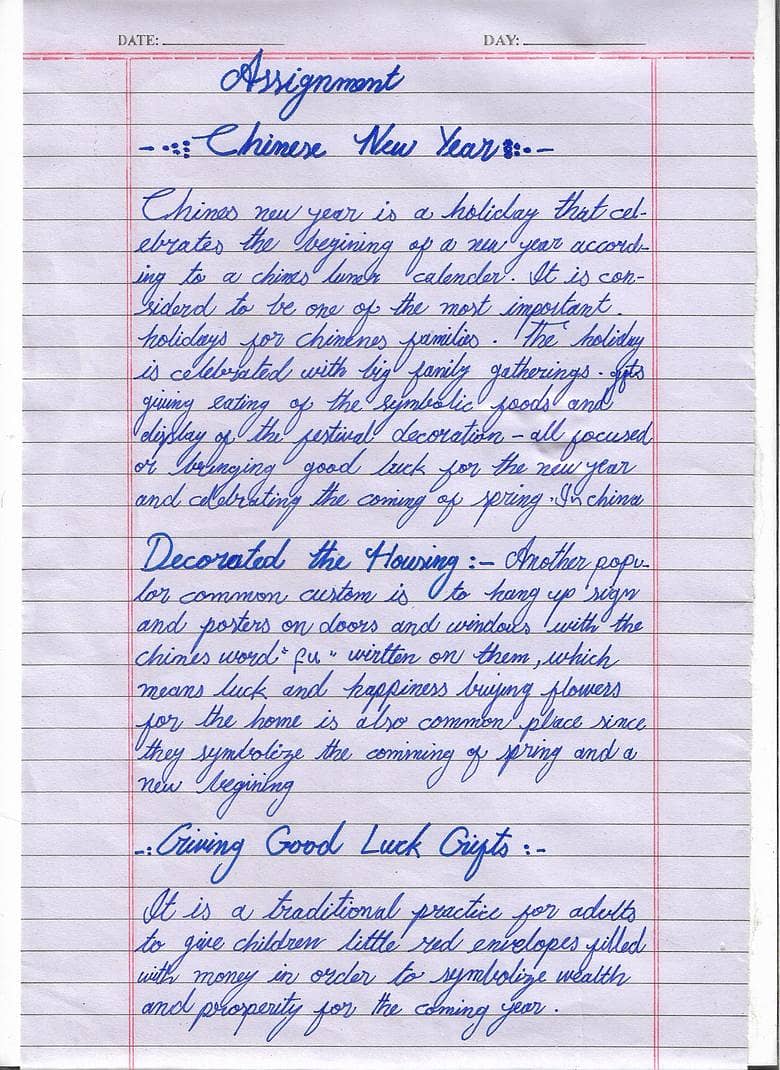 DATE: DAY:
Assignment
Chinese New Year
Chines new year is a holiday that cel-
ebrates the begining of a new year accord-
ing to a chines luner calender. It is con-
siderd to be one of the most important.
holidays for chinenes families. The holiday
is celebrated with big family gatherings. gifts
giving eating of the symbolic foods and
display of the festival decoration - all focused
or bringing good luck for the new year
and celebrating the coming of spring. In china
Decorated the Housing :- Another popu-
lor common custom is to hang up sign
and posters on doors and windows with the
chines word "fu" wirtten on them, which
means luck and happiness buying flowers
for the home is also common place since
they symbolize the comming of spring and a
new begining
-: Giving Good Luck Gifts :-
It is a traditional practice for adults
to give children little red envelopes filled
with money in order to symbolize wealth
and prosperity for the coming year.